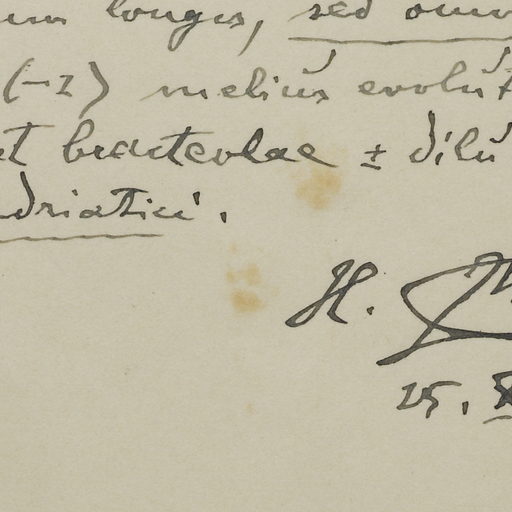 longis, sed omn
(-1) melius evolut
et bracteolae ± dilu
driatici.
H.
25. X